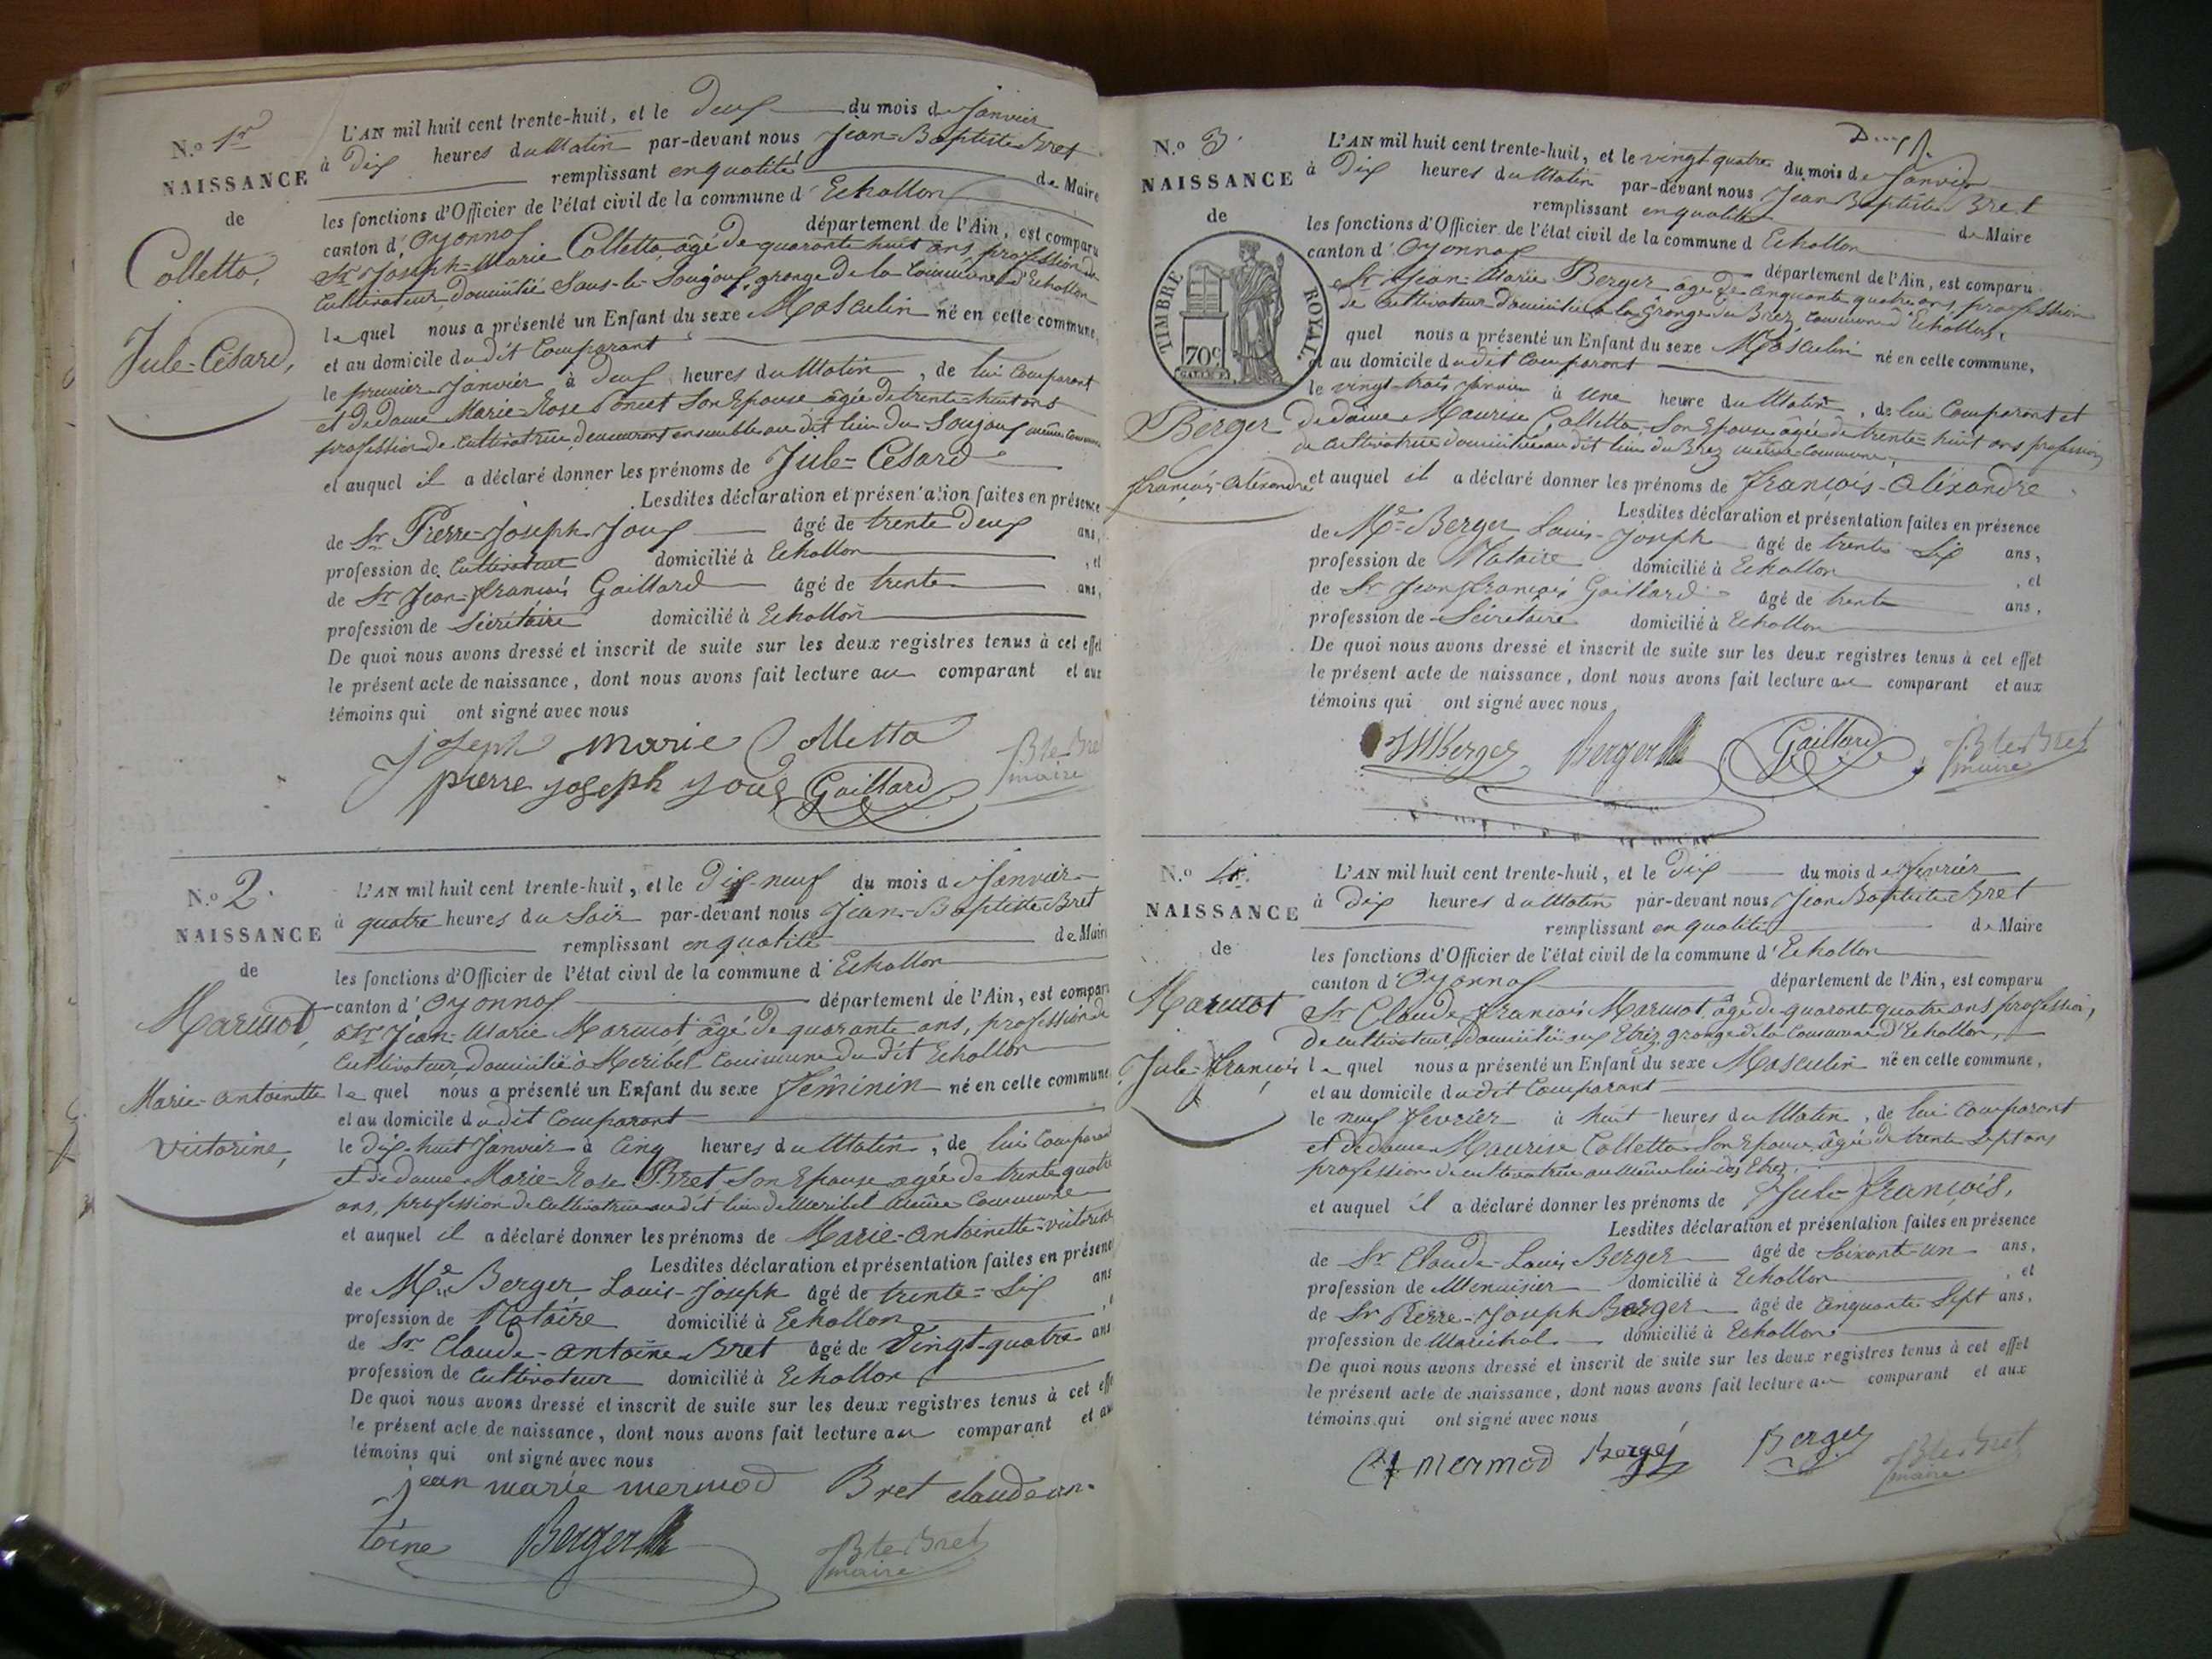 N.º 1er
NAISSANCE
de
Colletta,
Jule-Césard,
L'AN mil huit cent trente-huit, et le Deux du mois de Janvier
à Dix heures du Matin par-devant nous Jean-Baptiste Bret
remplissant en qualité de Maire
les fonctions d'Officier de l'état civil de la commune d'Echallon
canton d'Oyonnax département de l'Ain, est comparu
Sr Joseph-Marie Colletta, âgé de quarante huit ans, profession de
Cultivateur, Domicilié Sous-le-Soujoux, grange de la Commune d'Echallon
lequel nous a présenté un Enfant du sexe Masculin né en cette commune,
et au domicile du dit Comparant
le premier Janvier à Deux heures du Matin, de lui Comparant
et de dame Marie-Rose Poncet Son Epouse agée de trente-huit ans
profession de cultivatrice, demeurant ensemble au dit lieu du Soujoux même Commune
et auquel il a déclaré donner les prénoms de Jule-Césard
Lesdites déclaration et présentation faites en présence
de Sr Pierre-Joseph Joux âgé de trente Deux ans,
profession de Cultivateur domicilié à Echallon, et
de Sr Jean-François Gaillard âgé de trente ans,
profession de Sécrétaire domicilié à Echallon
De quoi nous avons dressé et inscrit de suite sur les deux registres tenus à cet effet
le présent acte de naissance, dont nous avons fait lecture au comparant et aux
témoins qui ont signé avec nous
Joseph marie Colletta
pierre joseph joux Gaillard Bte Bret
maire
N.º 2.
NAISSANCE
de
Marmot,
Marie-antoinette
victorine,
L'AN mil huit cent trente-huit, et le Dix-neuf du mois de Janvier
à quatre heures du Soir par-devant nous Jean-Baptiste Bret
remplissant en qualité de Maire
les fonctions d'Officier de l'état civil de la commune d'Echallon
canton d'Oyonnax département de l'Ain, est comparu
Sr Jean-Marie Marmot, âgé de quarante ans, profession de
Cultivateur, Domicilié à Meribel Commune du dit Echallon
lequel nous a présenté un Enfant du sexe Féminin né en cette commune
et au domicile du dit Comparant
le Dix-huit Janvier à Cinq heures du Matin, de lui Comparant
et de dame Marie-Rose Bret Son Epouse agée de trente quatre
ans, profession de Cultivatrice au dit lieu de Meribel même Commune
et auquel il a déclaré donner les prénoms de Marie-antoinette-victorine
Lesdites déclaration et présentation faites en présence
de Me Berger Louis-Joseph âgé de trente-Six ans
profession de Notaire domicilié à Echallon
de Sr Claude-antoine Bret âgé de Vingt-quatre ans
profession de Cultivateur domicilié à Echallon
De quoi nous avons dressé et inscrit de suite sur les deux registres tenus à cet effet
le présent acte de naissance, dont nous avons fait lecture au comparant et aux
témoins qui ont signé avec nous
jean marie mermod Bret claude an-
toine Berger Bte Bret
maire
N.º 3.
NAISSANCE
de
TIMBRE ROYAL.
70c
Berger
françois-aléxandre
L'AN mil huit cent trente-huit, et le vingt quatre du mois de Janvier
à Dix heures du Matin par-devant nous Jean Baptiste Bret
remplissant en qualité de Maire
les fonctions d'Officier de l'état civil de la commune d'Echallon
canton d'Oyonnax département de l'Ain, est comparu
Sr Jean-Marie Berger agé de Cinquante quatre ans profession
de Cultivateur Domicilié à la Grange du Brez, Commune d'Echallon,
quel nous a présenté un Enfant du sexe Masculin né en cette commune,
et au domicile du dit Comparant
le vingt-trois Janvier à Une heure du Matin, de lui Comparant et
de dame Maurise Colletta, Son Epouse agée de trente-huit ans profession
de Cultivatrice domiciliée au dit lieu du Brez même Commune,
et auquel il a déclaré donner les prénoms de françois-aléxandre
Lesdites déclaration et présentation faites en présence
de Me Berger Louis-Joseph âgé de trente Six ans,
profession de Notaire domicilié à Echallon, et
de Sr Jean françois Gaillard âgé de trente ans,
profession de Sécrétaire domicilié à Echallon
De quoi nous avons dressé et inscrit de suite sur les deux registres tenus à cet effet
le présent acte de naissance, dont nous avons fait lecture au comparant et aux
témoins qui ont signé avec nous
JM Berger Berger Gaillard Bte Bret
maire
N.º 4.
NAISSANCE
de
Marmot
Jule-françois
L'AN mil huit cent trente-huit, et le Dix du mois de fevrier
à Dix heures du Matin par-devant nous Jean Baptiste Bret
remplissant en qualité de Maire
les fonctions d'Officier de l'état civil de la commune d'Echallon
canton d'Oyonnax département de l'Ain, est comparu
Sr Claude françois Marmot, agé de quarante quatre ans profession,
De cultivateur, Domicilié aux Etrez, grange de la Commune d'Echallon,
lequel nous a présenté un Enfant du sexe Masculin né en cette commune,
et au domicile du dit Comparant
le neuf fevrier à huit heures du Matin, de lui Comparant
et de dame Maurise Colletta Son Epouse, âgée de trente Sept ans
profession de cultivatrice au même lieu des Etrez,
et auquel il a déclaré donner les prénoms de Jule-françois,
Lesdites déclaration et présentation faites en présence
de Sr Claude-Louis Berger âgé de Soixante-un ans,
profession de Menuisier domicilié à Echallon, et
de Sr Pierre-Joseph Berger âgé de Cinquante Sept ans,
profession de Maréchal domicilié à Echallon
De quoi nous avons dressé et inscrit de suite sur les deux registres tenus à cet effet
le présent acte de naissance, dont nous avons fait lecture au comparant et aux
témoins qui ont signé avec nous
mermod Berger Berger Bte Bret
maire